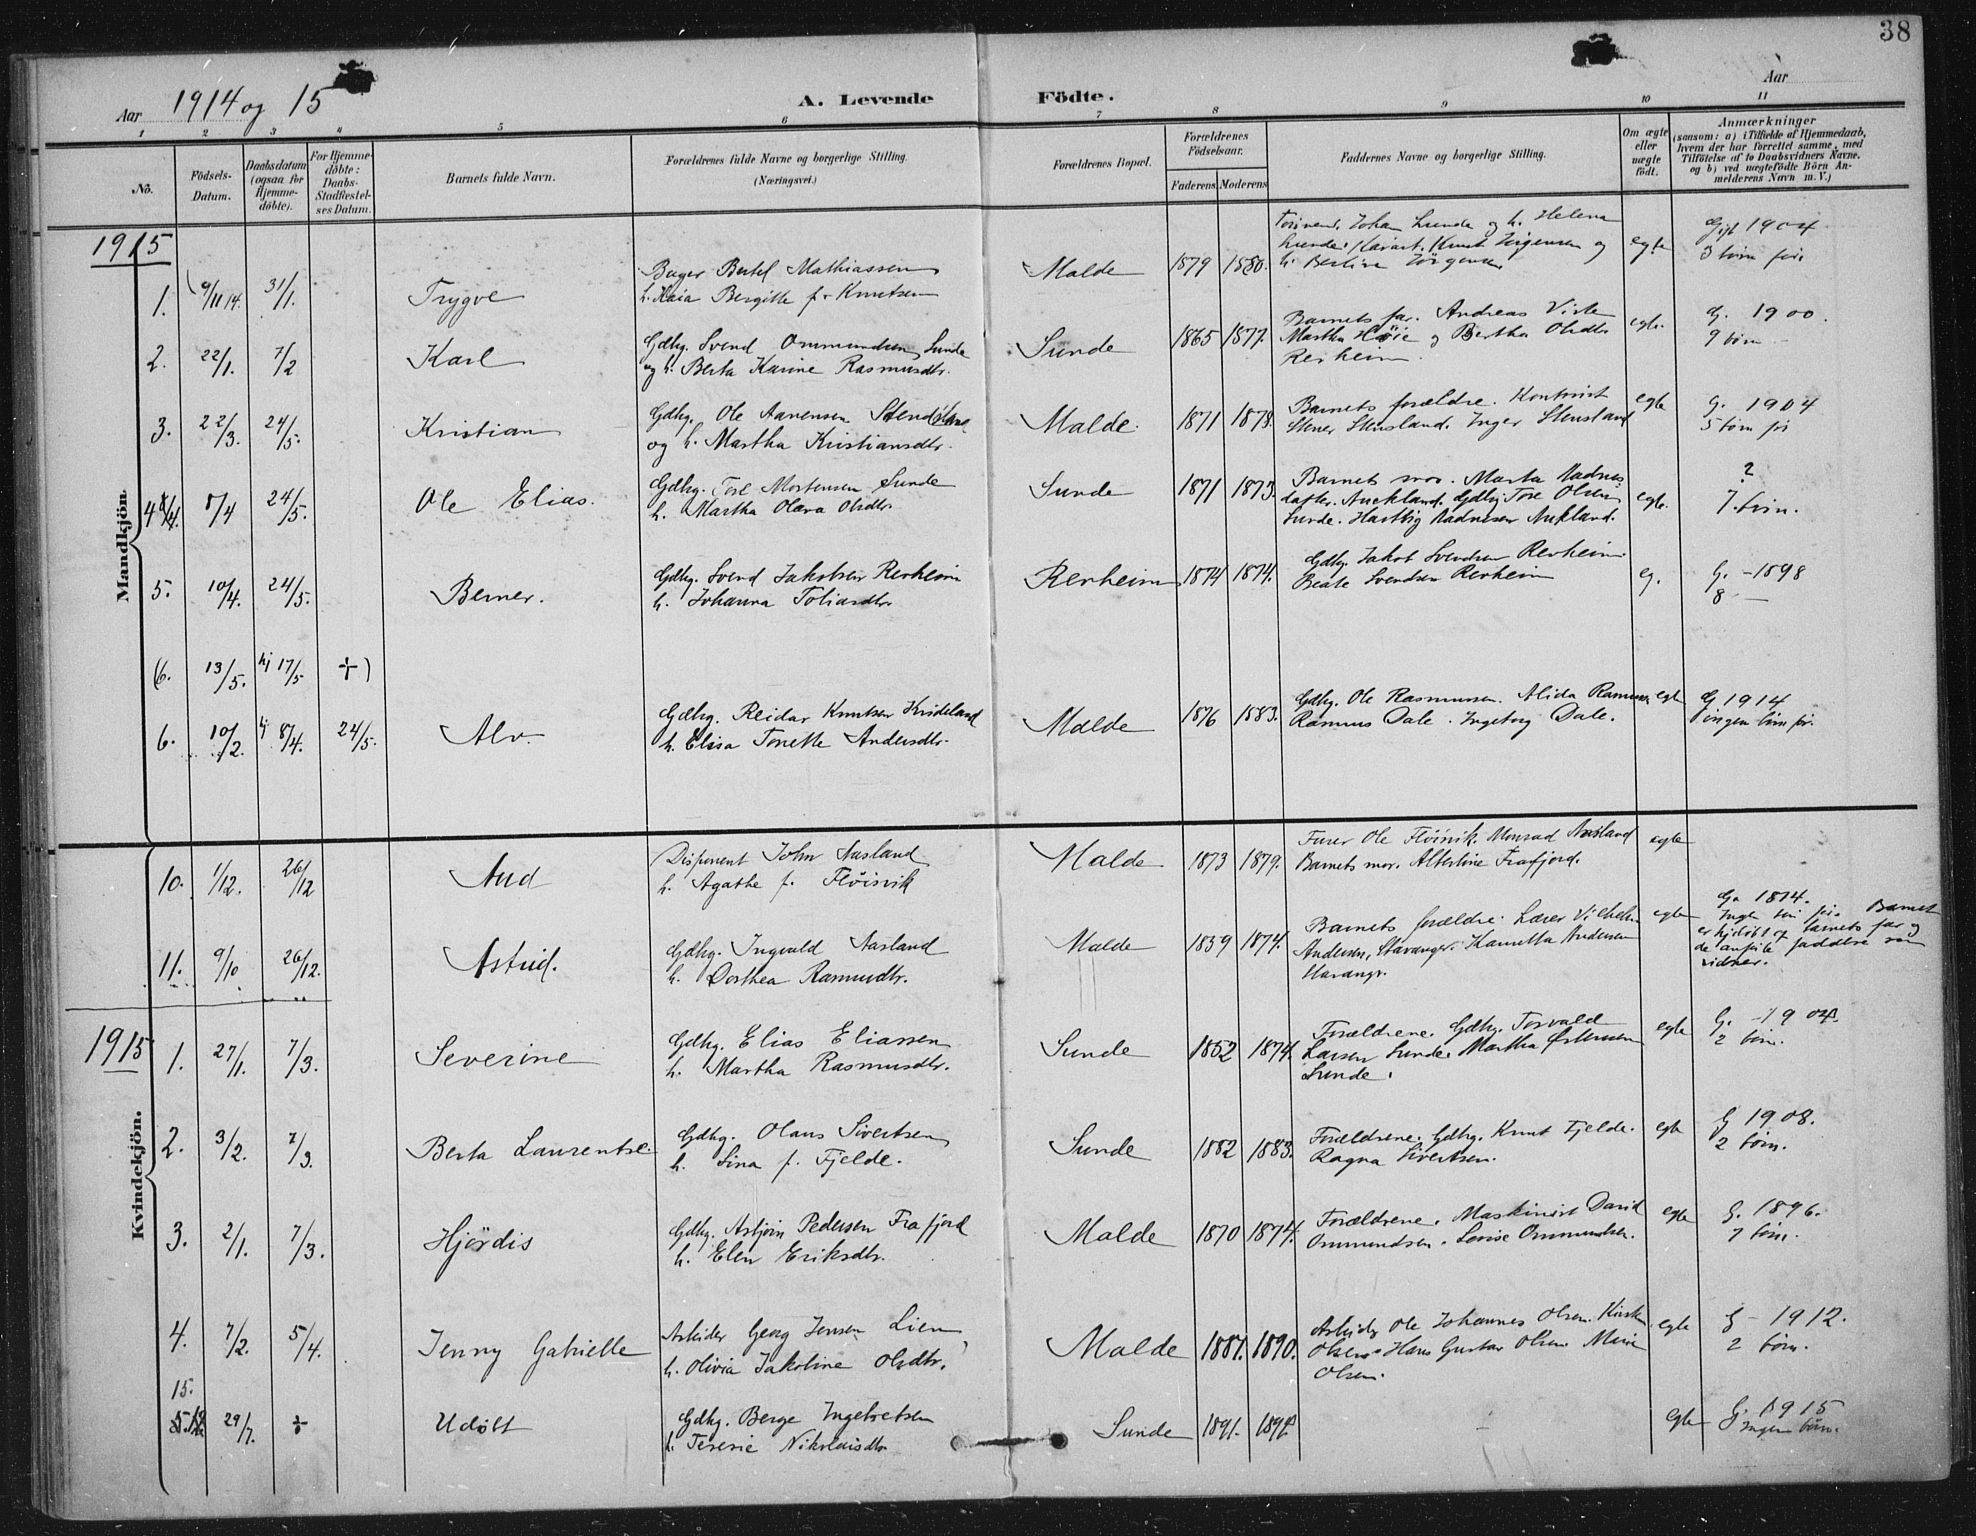 38
Aar 1914 og 15
A. Levende Födte.
Aar
1 2 3 4 5 6 7 8 9 10 11
No.
Födsels-Datum.
Daabsdatum (ogsaa for Hjemme-döbte).
For Hjemme-döbte: Daabs-Stadfæstel-ses Datum.
Barnets fulde Navn.
Forældrenes fulde Navne og borgerlige Stilling. (Næringsvei.)
Forældrenes Bopæl.
Forældrenes Födselsaar.
Faderens. Moderens
Faddernes Navne og borgerlige Stilling.
Om ægte eller uægte födt.
Anmærkninger
(saasom: a) i Tilfælde af Hjemmedaab, hvem der har forrettet samme, med Tilföielse af to Daabsvidners Navne, og b) ved uægtefödte Börn An-melderens Navn m. V.)
Mandkjön.
1915
1. 9/11 14. 31/1. Trygve
Bager Bertel Mathiassen
h. Kaia Bergitte f. Knutsen
Malde 1879 1880.
Johan Lunde og h. Helena
Lunde. Knut Jörgensen og
h. Berline Jörgensen
egte
Gift 1904
3 börn för.
2. 22/1. 7/2 Karl
Gdbg. Svend Ommundsen Sunde
og h. Berta Karine Rasmusdtr.
Sunde 1865 1877.
Barnets far. Andreas Viste
Martha Høie og Bertha Olsdtr
Revheim.
egte.
G. 1900.
9 börn
3. 22/3. 24/5. Kristian
Gdbg. Ole Aanensen
og h. Martha Kristiansdtr.
Malde. 1871 1878.
Barnets forældre. Kontorist
Stener Stensland. Inger Stensland
egte
G. 1904
5 börn för
4 8/4 24/5. Ole Elias.
Gdbg. Tore Mortensen Sunde
h. Martha Olava Olsdtr.
Sunde 1871 1873.
Barnets mor. Marta
Auckland. Gdbg. Tore Olsen
Sunde. Aukland.
egte.
?
7 börn.
5. 10/4. 24/5. Berner.
Gdbg. Svend Jakobsen Revheim
h. Johanna Tobiasdtr
Revheim 1874 1874.
Gdbg. Jakob Svendsen Revheim.
Beate Svendsen Revheim
eg.
G. - 1898
8 —
(6. 13/5. hj 17/5 ÷)
6. 10/2. hj 8/4. 24/5. Alv.
Gdbg. Reidar Knutsen
h. Elisa Tonette Andersdtr.
Malde 1876 1883.
Gdbg. Ole Rasmussen. Alida Rasmussen
Rasmus Dale. Ingeborg Dale.
egte
G 1914
ingen börn för.
Kvindekjön.
10. 1/12. 26/12 Aud
Disponent John Aasland
h. Agathe f. Flöisvik
Malde 1873 1879.
Ole Flöisvik. Monrad Aasland
Barnets mor. Albertine Frafjord.
egte
11. 9/10 26/12. Astrid.
Gdbg. Ingvald Aasland
h. Dorthea Rasmusdtr.
Malde 1839 1874.
Barnets forældre. Lærer Vilhelm
Andersen, Stavanger. Andersen
Stavanger.
egte
G. 1874.
Barnet
er hjdöbt af barnets far og
de anförte faddere som
vidner.
1915
1. 27/1. 7/3. Severine
Gdbg. Elias Eliassen
h. Martha Rasmusdtr.
Sunde 1852 1874.
Forældrene. Gdbg. Torvald
Larsen Sunde. Martha
Sunde.
egte
G. - 1904.
2 börn.
2. 3/2. 7/3. Berta Laurentse.
Gdbg. Olaus Sivertsen
h. Sina f. Fjelde.
Sunde 1882 1883.
Forældrene. Gdbg. Knut Fjelde.
Ragna Sivertsen.
egte
G 1908.
2 börn.
3. 2/1. 7/3. Hjørdis
Gdbg. Asbjørn Pedersen Frafjord
h. Elen Eriksdtr.
Malde 1870 1874.
Forældrene. Maskinist David
Ommundsen. Lovise Ommundsen.
egte
G. 1896.
7 börn.
4. 7/2. 5/4. Jenny Gabrielle
Arbeider Georg Jensen Lien
h. Olivia Jakobine Olsdtr.
Malde 1887. 1890.
Arbeider Ole Johannes Olsen.
Olsen. Hans Gustav Olsen. Marie
Olsen.
egte
G - 1912.
2 börn.
15.
29/7. ÷ Udöbt
Gdbg. Berge Ingebretsen
h. Terese Nikolaisdtr
Sunde 1891. 1894
egte
G. 1915
Ingen börn.